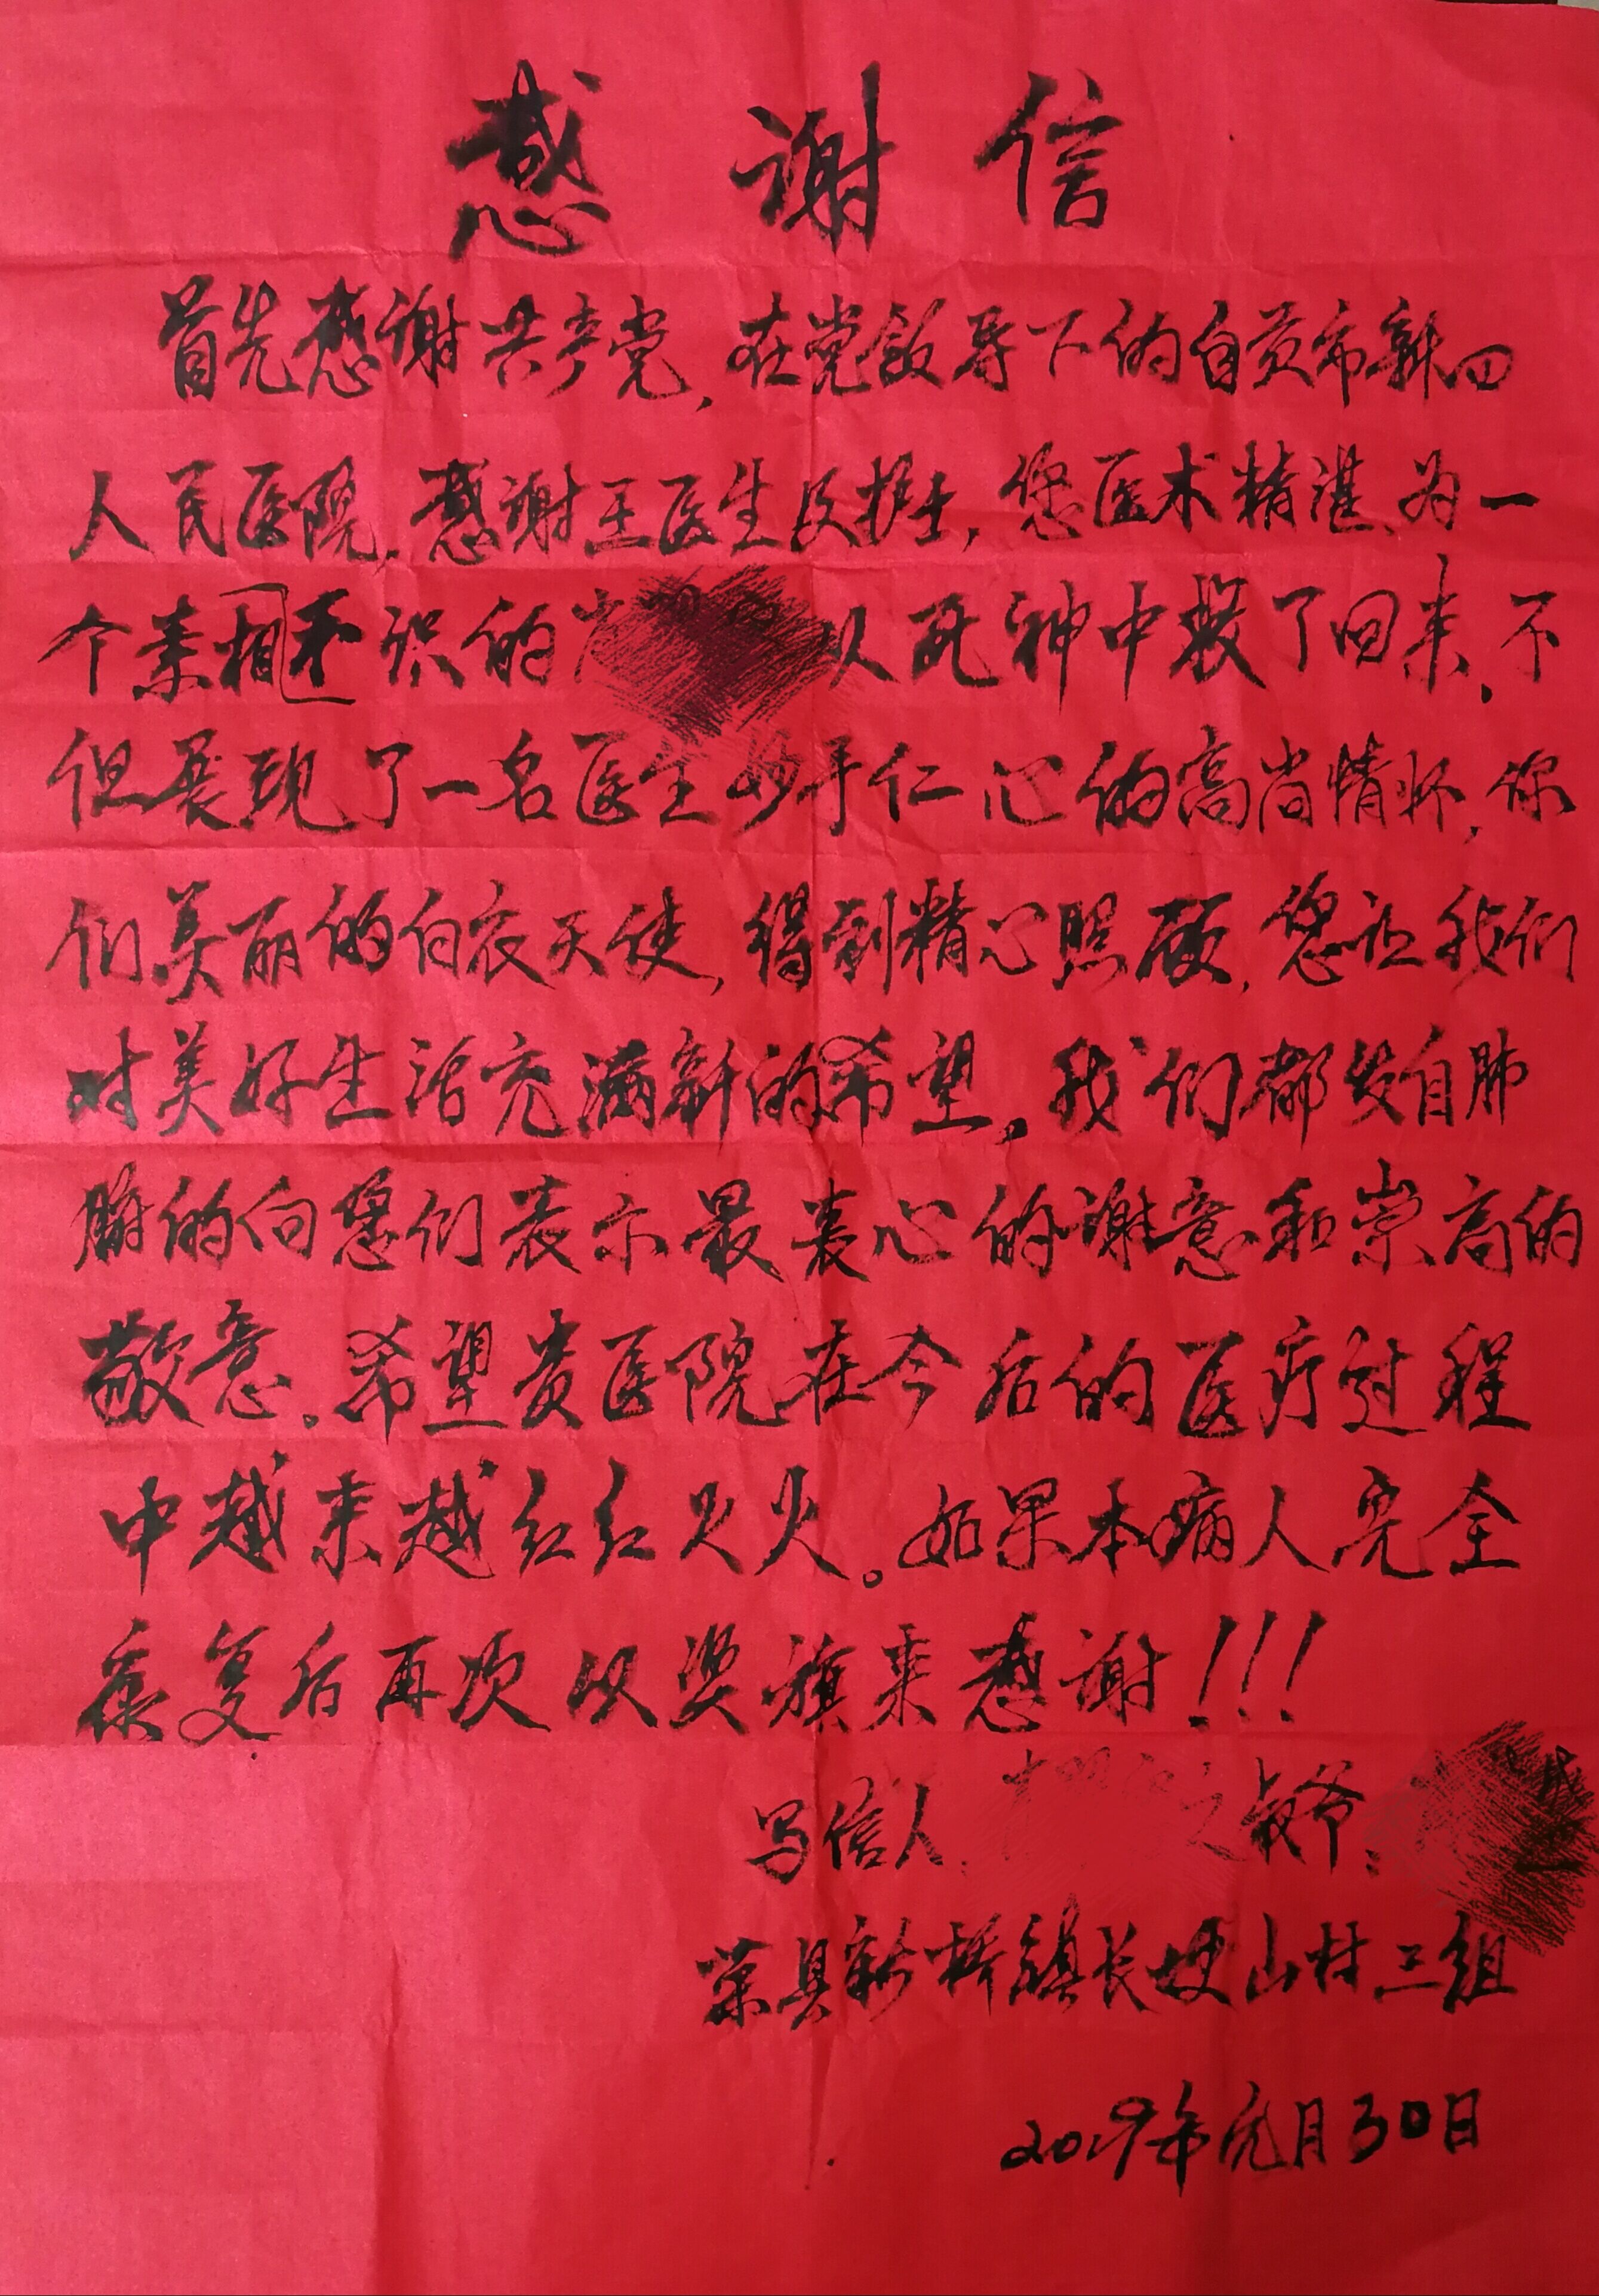 感谢信
首先感谢共产党,在党领导下的自贡市第四
人民医院,感谢王医生及护士,您医术精湛、为一
个素相不识的 从死神中救了回来,不
但展现了一名医生妙手仁心的高尚情怀,你
们美丽的白衣天使,得到精心照顾,您让我们
对美好生活充满新的希望。我们都发自肺
腑的向您们表示最衷心的谢意和崇高的
敬意。希望贵医院在今后的医疗过程
中越来越红红火火。如果本病人完全
康复后再次以奖旗来感谢!!!
写信人 之叔爷:
荣县新桥镇长埂山村三组
2019年元月30日